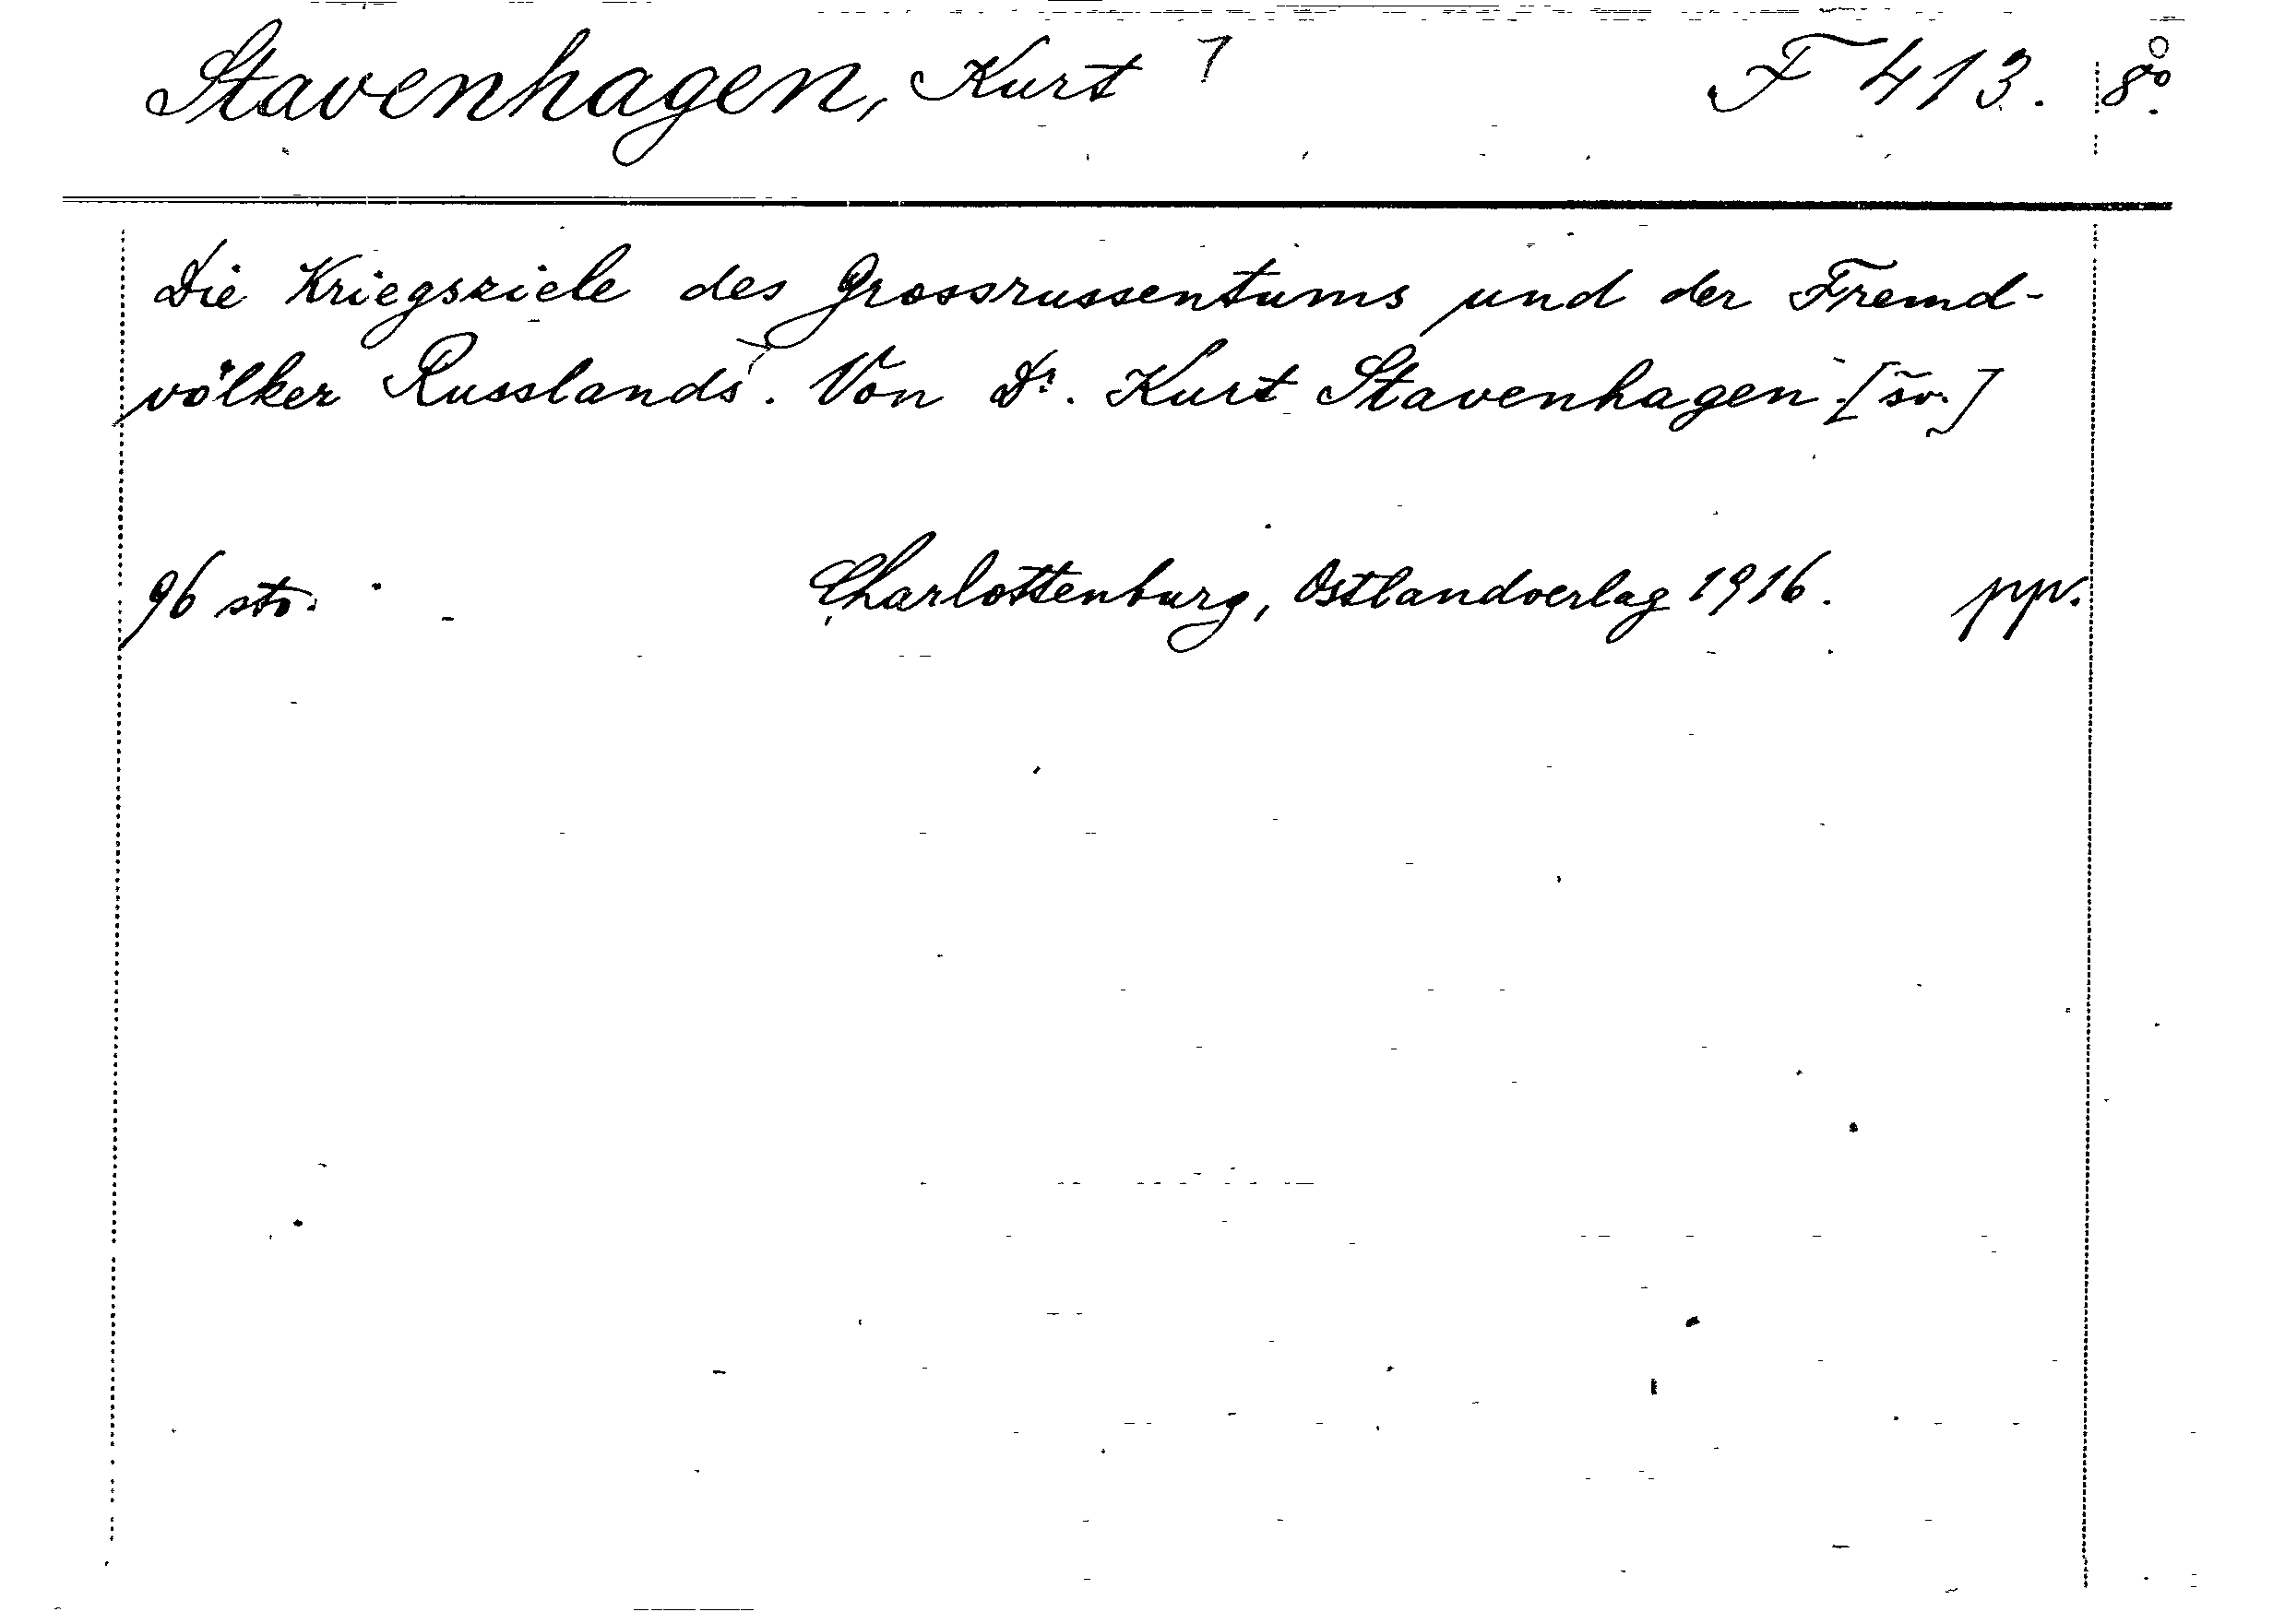 Stavenhagen, Kurt F 413. 8:o
Die Kriegsziele des Grossrussentums und der Fremd-
völker Russlands. Von Dr. Kurt Stavenhagen.
96 sto. Charlottenburg, Ostlandverlag 1916. pp.